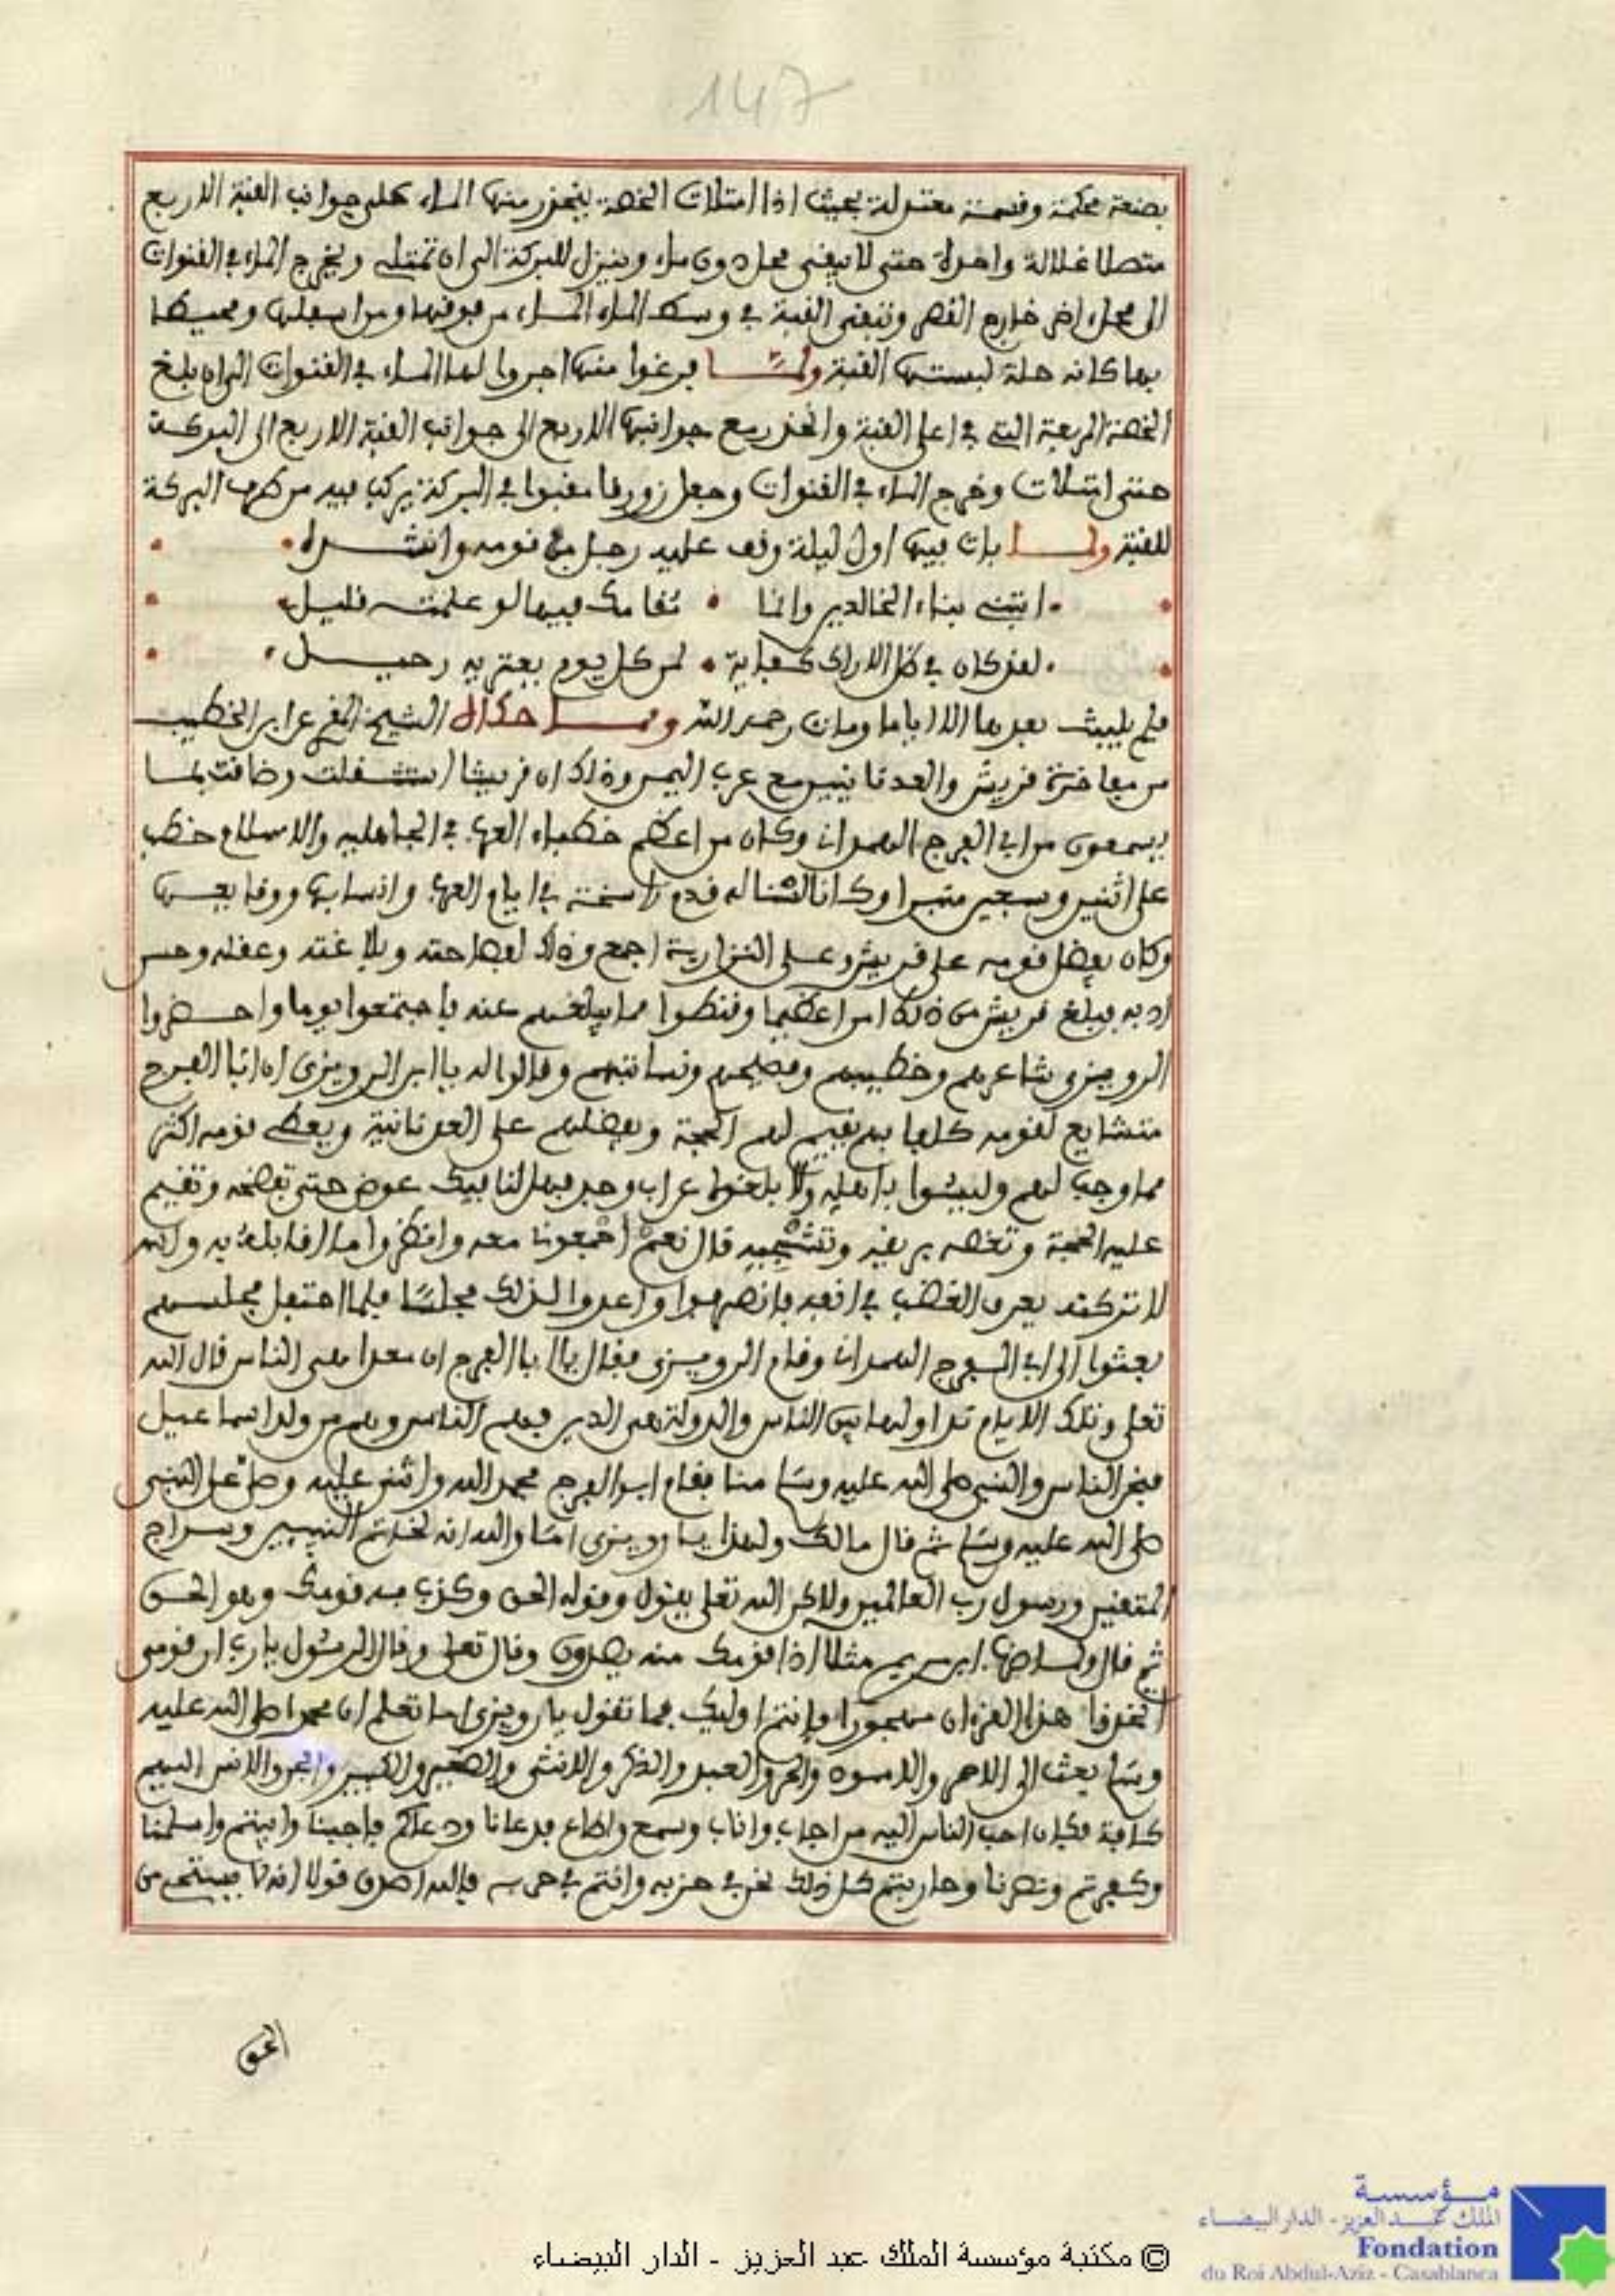 147
بصنعة محكمة وقسمة معتدلة بحيث اذا امتلات الخصة ينحدر منها الماء على جوانب القبة الاربع
متصلا غلالة واحدة حتى لا يبقى محل دون ماء وينزل للبركة الى ان تمتلء ويخرج الماء في القنوات
الى محل اخر خارج القصر وتبقى القبة في وسط الماء الماء من فوقها ومن اسفلها ومحيط
بها كانه حلة لبستها القبة ولما فرغوا منها اجروا لها الماء في القنوات الى ان بلغ
الخصة المربعة التي في اعلى القبة وانحدر مع جوانبها الاربع الى جوانب القبة الاربع الى البركة
حتى امتلات وخرج الماء في القنوات وجعل زورقا مقبوا في البركة يركب فيه من طرف البركة
للقبة ولما بات فيها اول ليلة وقف عليه رجل في نومه وانشده
ابتني بناء الخالدين وانما مقامك فيها لو علمت قليل
لقد كان في ظل الاراك كفاية لمن كل يوم يعتريه رحيل
فلم يلبث بعدها الا اياما ومات رحمه الله ومما حكاه الشيخ المقرئ عن ابن الخطيب
من مفاخرة قريش والعدنانيين مع عرب اليمن وذلك ان قريشا استثقلت وضاقت بما
يسمعون من ابي الفرج الهمداني وكان من اعظم خطباء العرب في الجاهلية والاسلام خطب
على اثنين وسبعين منبرا وكان له قدم راسخة في ايام العرب وانسابها ووقايعها
وكان يفضل قومه على قريش وعلى النزارية اجمع وذلك لفصاحته وبلاغته وعقله وحسن
ادبه فبلغ قريش من ذلك امرا عظيما وقنطوا مما يبلغهم عنه فاجتمعوا يوما واحضروا
الرويزي شاعرهم وخطيبهم وفصيحهم ونسابتهم وقالوا له يا ابن الرويزي ان ابا الفرج
متشايع لقومه كلفا بهم يقيم لهم الحجة ويفضلهم على العدنانية ويعطي قومه اكثر
مما وجب لهم وليسوا باهله ولا بلغوا عراب وجد فهل لنا فيك عوض حتى تفضحه وتقيم
عليه الحجة وتغصه بريقه وتشجيه قال نعم اجمعونا معه وانظروا ما القا بله به والله
لا تركته يعرف الغضب في انفه فانصرفوا واعدوا لذلك مجلسا فلما احتفل مجلسهم
بعثوا الى ابي الفرج الهمداني وقام الرويزي فقال يا ابا الفرج ان معدا هي الناس قال الله
تعلى وتلك الايام نداولها بين الناس والدولة هي الدين فهم الناس وهم من ولد اسماعيل
فنحن الناس والنبي صلى الله عليه وسلم منا فقام ابو الفرج فحمد الله واثنى عليه وصلى على النبي
صلى الله عليه وسلم ثم قال مالك ولهذا يا رويزي اما والله انه لخاتم النبيين وسراج
المتقين ورسول رب العالمين ولاكن الله تعلى يقول وقوله الحق وكذب به قومك وهو الحق
ثم قال ولما ضرب ابن مريم مثلا اذا قومك منه يصدون وقال تعلى وقال الرسول يا رب ان قومي
اتخذوا هذا القرءان مهجورا فانتم اوليك فما تقول يا رويزي اما تعلم ان محمدا صلى الله عليه
وسلم بعث الى الاحمر والاسود والحر والعبد والذكر والانثى والصغير والكبير والجن والانس اليهم
كافة فكان احب الناس اليه من اجاب واناب وسمع واطاع فدعانا ودعاكم فاجبنا وابيتم واسلمنا
وكفرتم ونصرنا وحاربتم كل ذلك نحن في حزبه وانتم في حربه فالله اصدق قولا اذ لنا فيستم من
الحق
مؤسسة
الملك عبد العزيز - الدار البيضاء
Fondation
du Roi Abdul-Aziz - Casablanca
© مكتبة مؤسسة الملك عبد العزيز - الدار البيضاء